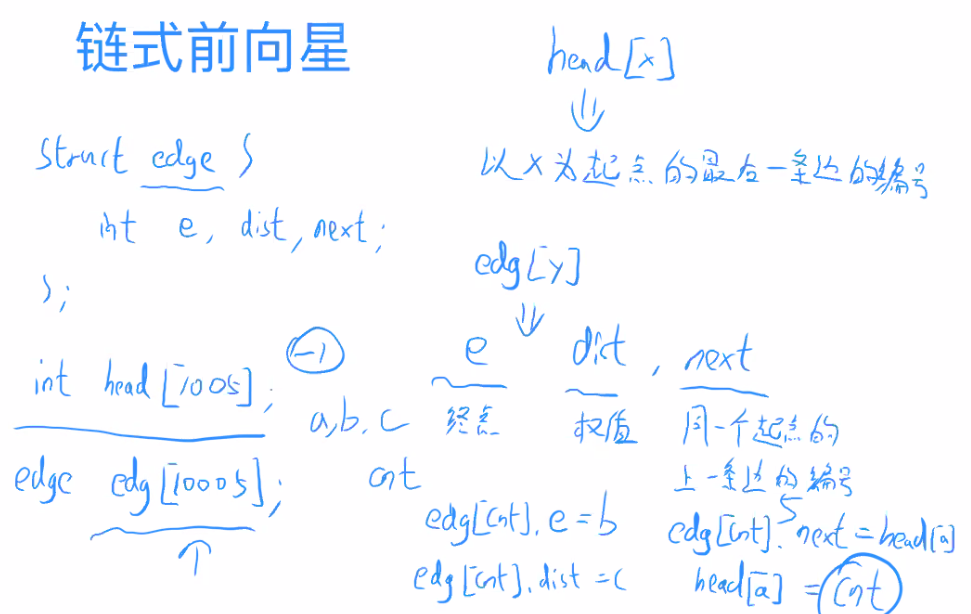 链式前向星
struct edge {
int e, dist, next;
};
int head[1005];
-1
edge edg[10005];
head[x]
以x为起点的最后一条边的编号
edg[y]
e dist, next
终点 权值 同一个起点的
上一条边的编号
a, b, c
cnt
edg[cnt].e = b
edg[cnt].dist = c
edg[cnt].next = head[a]
head[a] = cnt